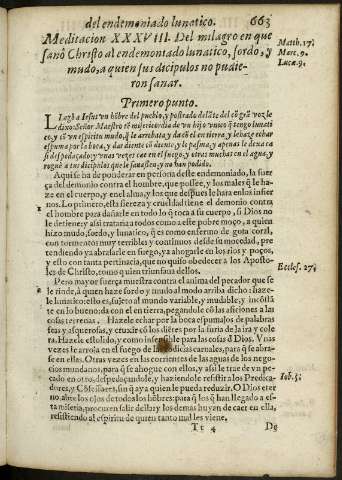 del endemoniado lunatico.
663
Meditacion XXXVIII. Del milagro en que
sanò Christo al endemoniado lunatico, sordo, y
mudo, a quien sus dicipulos no pudie-
ron sanar.
Matth. 17.
Marc. 9.
Luc. 9.
Primero punto.
Llegò a Iesus vn hõbre del pueblo, y postrado delãte del cõ grã voz le
dixo: Señor Maestro tẽ misericordia de vn hijo vnico q̃ tengo lunati
co, y cõ vn espiritu mudo, q̃ le arrebata y da cõ el en tierra, y le haze echar
espuma por la boca, y dar diente cõ diente, y le pasma, y apenas le dexa ca
si despedaçado; y vnas vezes cae en el fuego, y otras muchas en el agua, y
roguè a tus dicipulos que le sanassen, y no han podido.
Aqui se ha de ponderar en persona deste endemoniado, la fuer
ça del demonio contra el hombre, que possee, y los males q̃ le ha-
ze en el cuerpo, y en el alma, y los que despues le hara en los infier
nos. Lo primero, esta fiereza y crueldad tiene el demonio contra
el hombre para dañarle en todo lo q̃ toca a su cuerpo, si Dios no
le detiene: y assi trataria a todos como a este pobre moço, a quien
hizo mudo, sordo, y lunatico, q̃ es como enfermo de gota coral,
con tormentos muy terribles y continuos desde su mocedad, pre
tendiendo ya abrasarle en fuego, ya ahogarle en los rios y poços,
y esto con tanta pertinacia, que no quiso obedecer a los Aposto-
les de Christo, como quien triunfaua dellos.
Eccles. 27.
Pero mayor fuerça muestra contra el anima del pecador que se
le rinde, à quien haze sordo y mudo al modo arriba dicho: haze-
le lunatico: esto es, sujeto al mundo variable, y mudable, y incõstã
te en lo bueno: da con el en tierra, pegandole cõ las aficiones a las
cosas terrenas. Hazele echar por la boca espumajos de palabras
feas y asquerosas, y cruxir cõ los diẽtes por la furia de la ira y cole
ra. Hazele estolido, y como insensible para las cosas d̃ Dios. Vnas
vezes le arroja en el fuego de las codicias carnales, para q̃ se abra-
se en ellas. Otras vezes en las corrientes de las aguas de los nego-
cios mundanos, para q̃ se ahogue con ellos, y assi le trae de vn pe-
cado en otro, despedaçandole, y haziendole resistir a los Predica-
dores, y Cõfessores, sin q̃ aya quien le pueda reduzir. O Dios eter
no, abre los ojos de todos los hõbres: para q̃ los q̃ han llegado a es-
ta miseria, procuren salir della: y los demas huyan de caer en ella,
resistiendo al espiritu de quien tanto mal les viene.
Iob. 5.
Tt 4
De